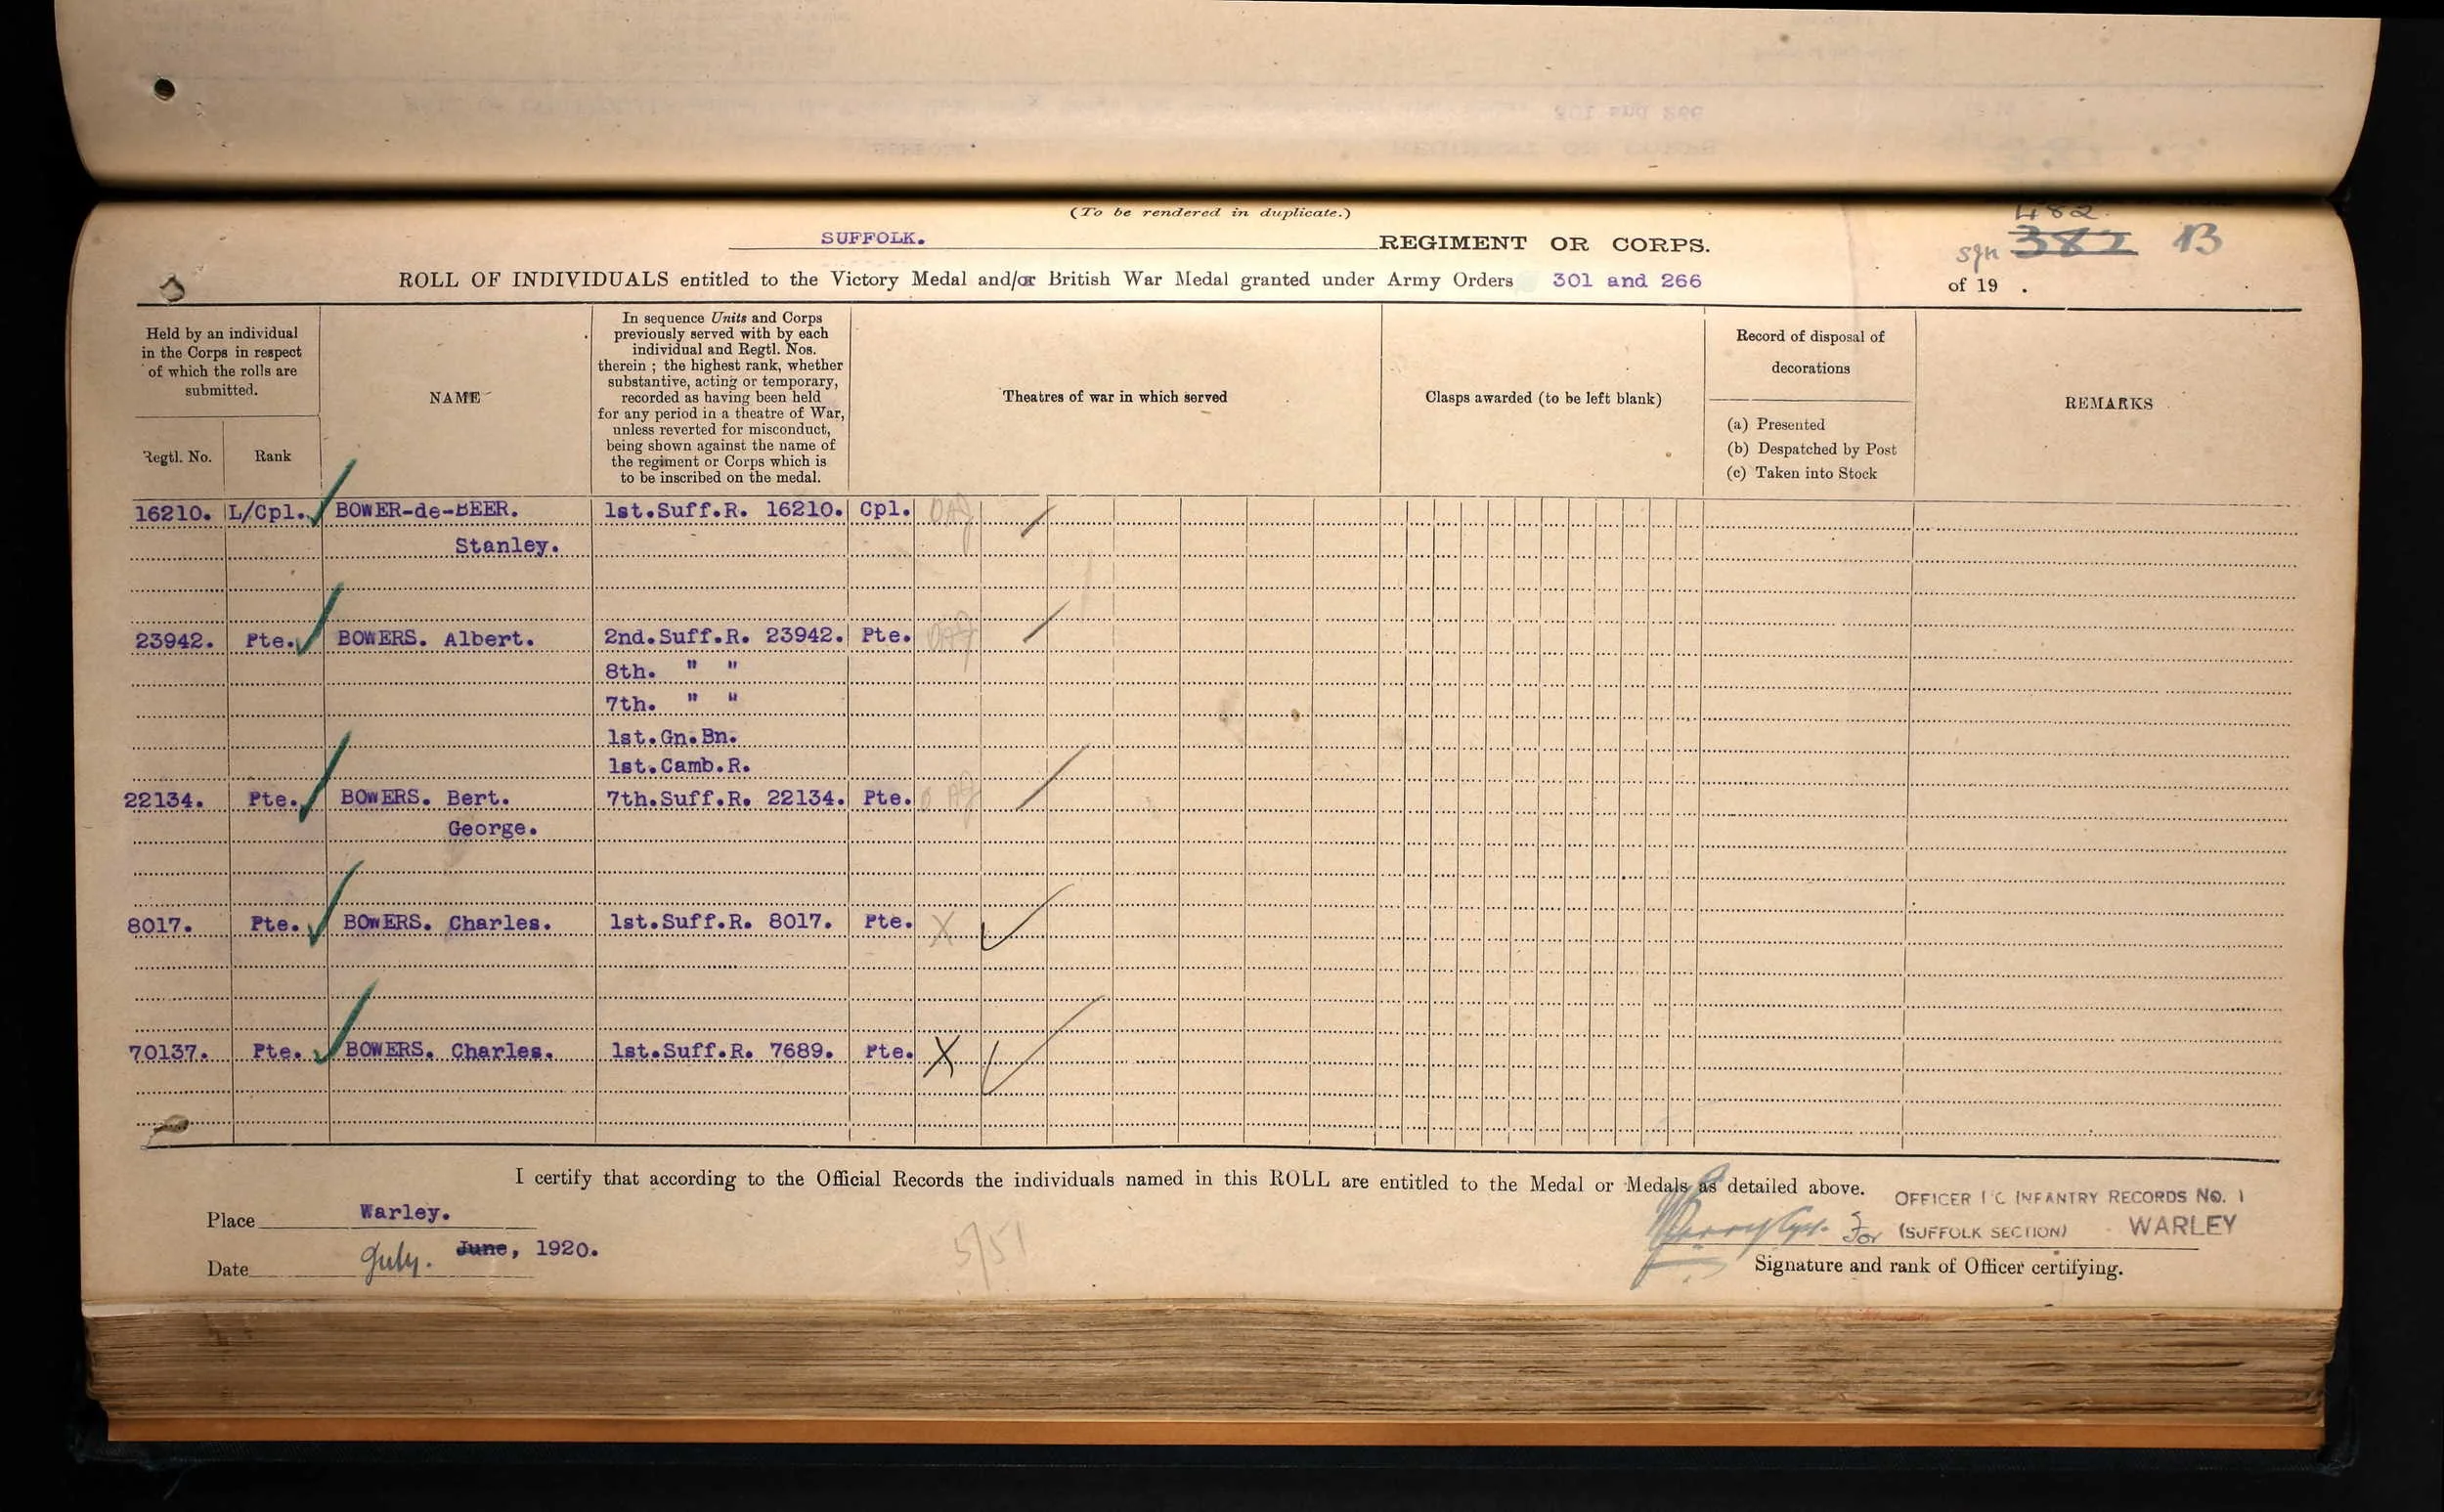 (To be rendered in duplicate.)
482.
SUFFOLK. REGIMENT OR CORPS.
382 B
ROLL OF INDIVIDUALS entitled to the Victory Medal and/or British War Medal granted under Army Orders 301 and 266 of 19 .
Held by an individual
in the Corps in respect
of which the rolls are
submitted.
Regtl. No. Rank
NAME
In sequence Units and Corps
previously served with by each
individual and Regtl. Nos.
therein ; the highest rank, whether
substantive, acting or temporary,
recorded as having been held
for any period in a theatre of War,
unless reverted for misconduct,
being shown against the name of
the regiment or Corps which is
to be inscribed on the medal.
Theatres of war in which served
Clasps awarded (to be left blank)
Record of disposal of
decorations
(a) Presented
(b) Despatched by Post
(c) Taken into Stock
REMARKS
16210. L/Cpl. BOWER-de-BEER. 1st.Suff.R. 16210. Cpl.
Stanley.
23942. Pte. BOWERS. Albert. 2nd.Suff.R. 23942. Pte.
8th. " "
7th. " "
1st.Gn.Bn.
1st.Camb.R.
22134. Pte. BOWERS. Bert. 7th.Suff.R. 22134. Pte.
George.
8017. Pte. BOWERS. Charles. 1st.Suff.R. 8017. Pte. X
70137. Pte. BOWERS. Charles. 1st.Suff.R. 7689. Pte. X
I certify that according to the Official Records the individuals named in this ROLL are entitled to the Medal or Medals as detailed above.
OFFICER I C INFANTRY RECORDS No. 1
Place Warley.
For (SUFFOLK SECTION) WARLEY
Date July. June, 1920.
5/51
Signature and rank of Officer certifying.